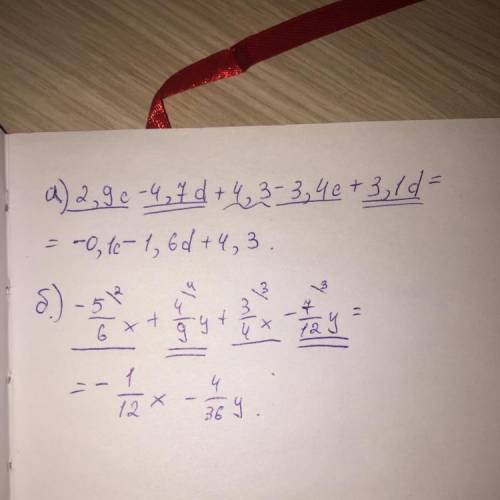 а) 2,9c - 4,7d + 4,3 - 3,4c + 3,1d =
= -0,1c - 1,6d + 4,3.
б.) -5/6^\2 x + 4/9^\4 y + 3/4^\3 x - 7/12^\3 y =
= - 1/12 x - 4/36 y.